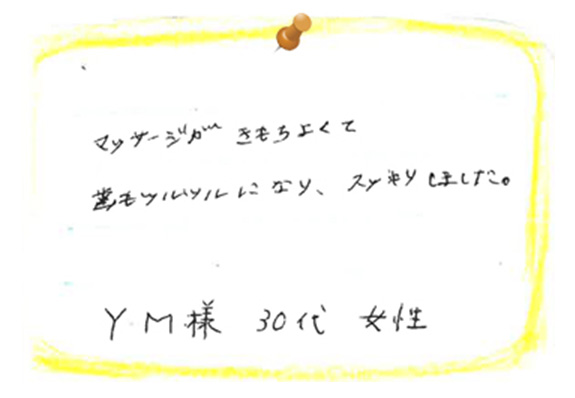 マッサージが きもちよくて
歯もツルツルになり、スッキリしました。
YM様 30代 女性